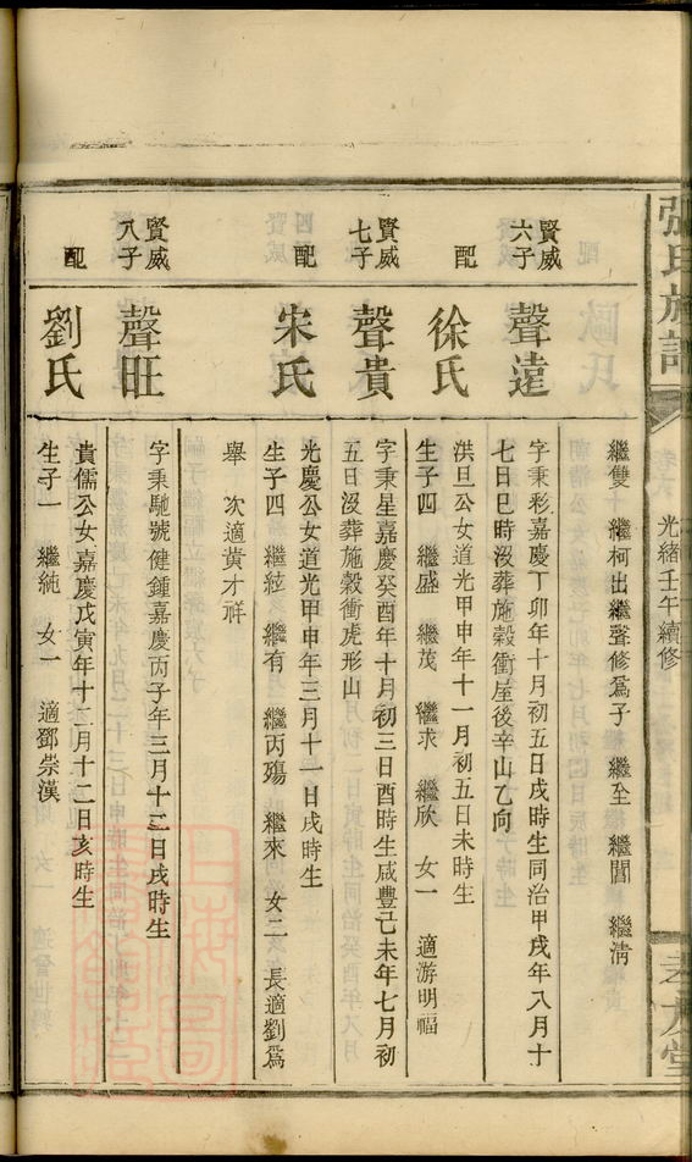 張氏族譜
光緒壬午續修
繼雙 繼柯出繼聲修爲子 繼至 繼閶 繼淸
賢威六子
聲遠
字秉彩嘉慶丁卯年十月初五日戌時生同治甲戌年八月十
七日巳時沒葬施穀衝屋後辛山乙向
配
徐氏
洪旦公女道光甲申年十一月初五日未時生
生子四 繼盛 繼茂 繼求 繼欣 女一 適游明福
賢威七子
聲貴
字秉星嘉慶癸酉年十月初三日酉時生咸豐己未年七月初
五日沒葬施穀衝虎形山
配
宋氏
光慶公女道光甲申年三月十一日戌時生
生子四 繼絃 繼有 繼丙殤 繼來 女二 長適劉爲
舉 次適黃才祥
賢威八子
聲旺
字秉馳號健鍾嘉慶丙子年三月十二日戌時生
配
劉氏
貴儒公女嘉慶戊寅年十二月十二日亥時生
生子一 繼純 女一 適鄧崇漢